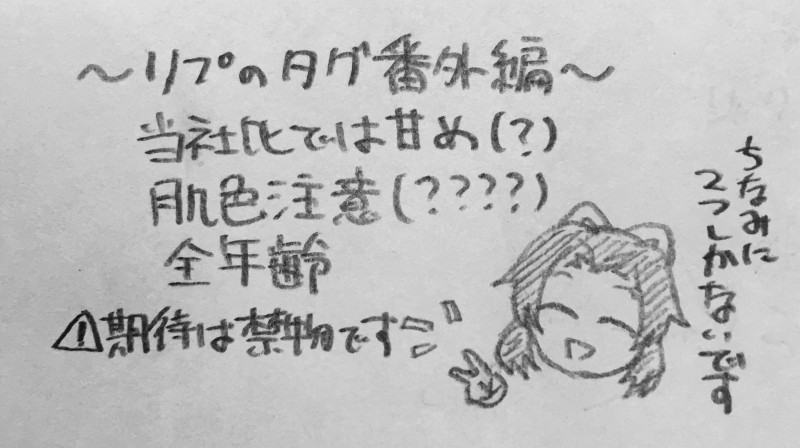 〜リプのタグ番外編〜
当社比では甘め(?)
肌色注意(????)
全年齢
⚠期待は禁物です
ちなみに
2つしかないです